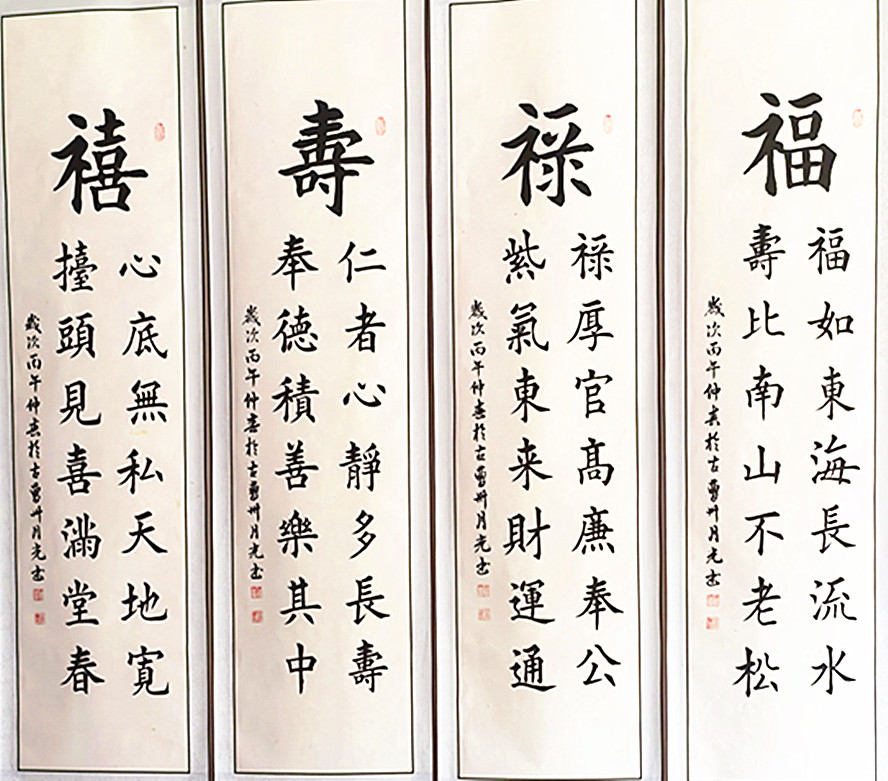 福
福如東海長流水
壽比南山不老松
歲次丙午仲春於古曹州月光書
禄
禄厚官高廉奉公
紫氣東来財運通
歲次丙午仲春於古曹州月光書
壽
仁者心靜多長壽
奉德積善樂其中
歲次丙午仲春於古曹州月光書
禧
心底無私天地寬
擡頭見喜滿堂春
歲次丙午仲春於古曹州月光書